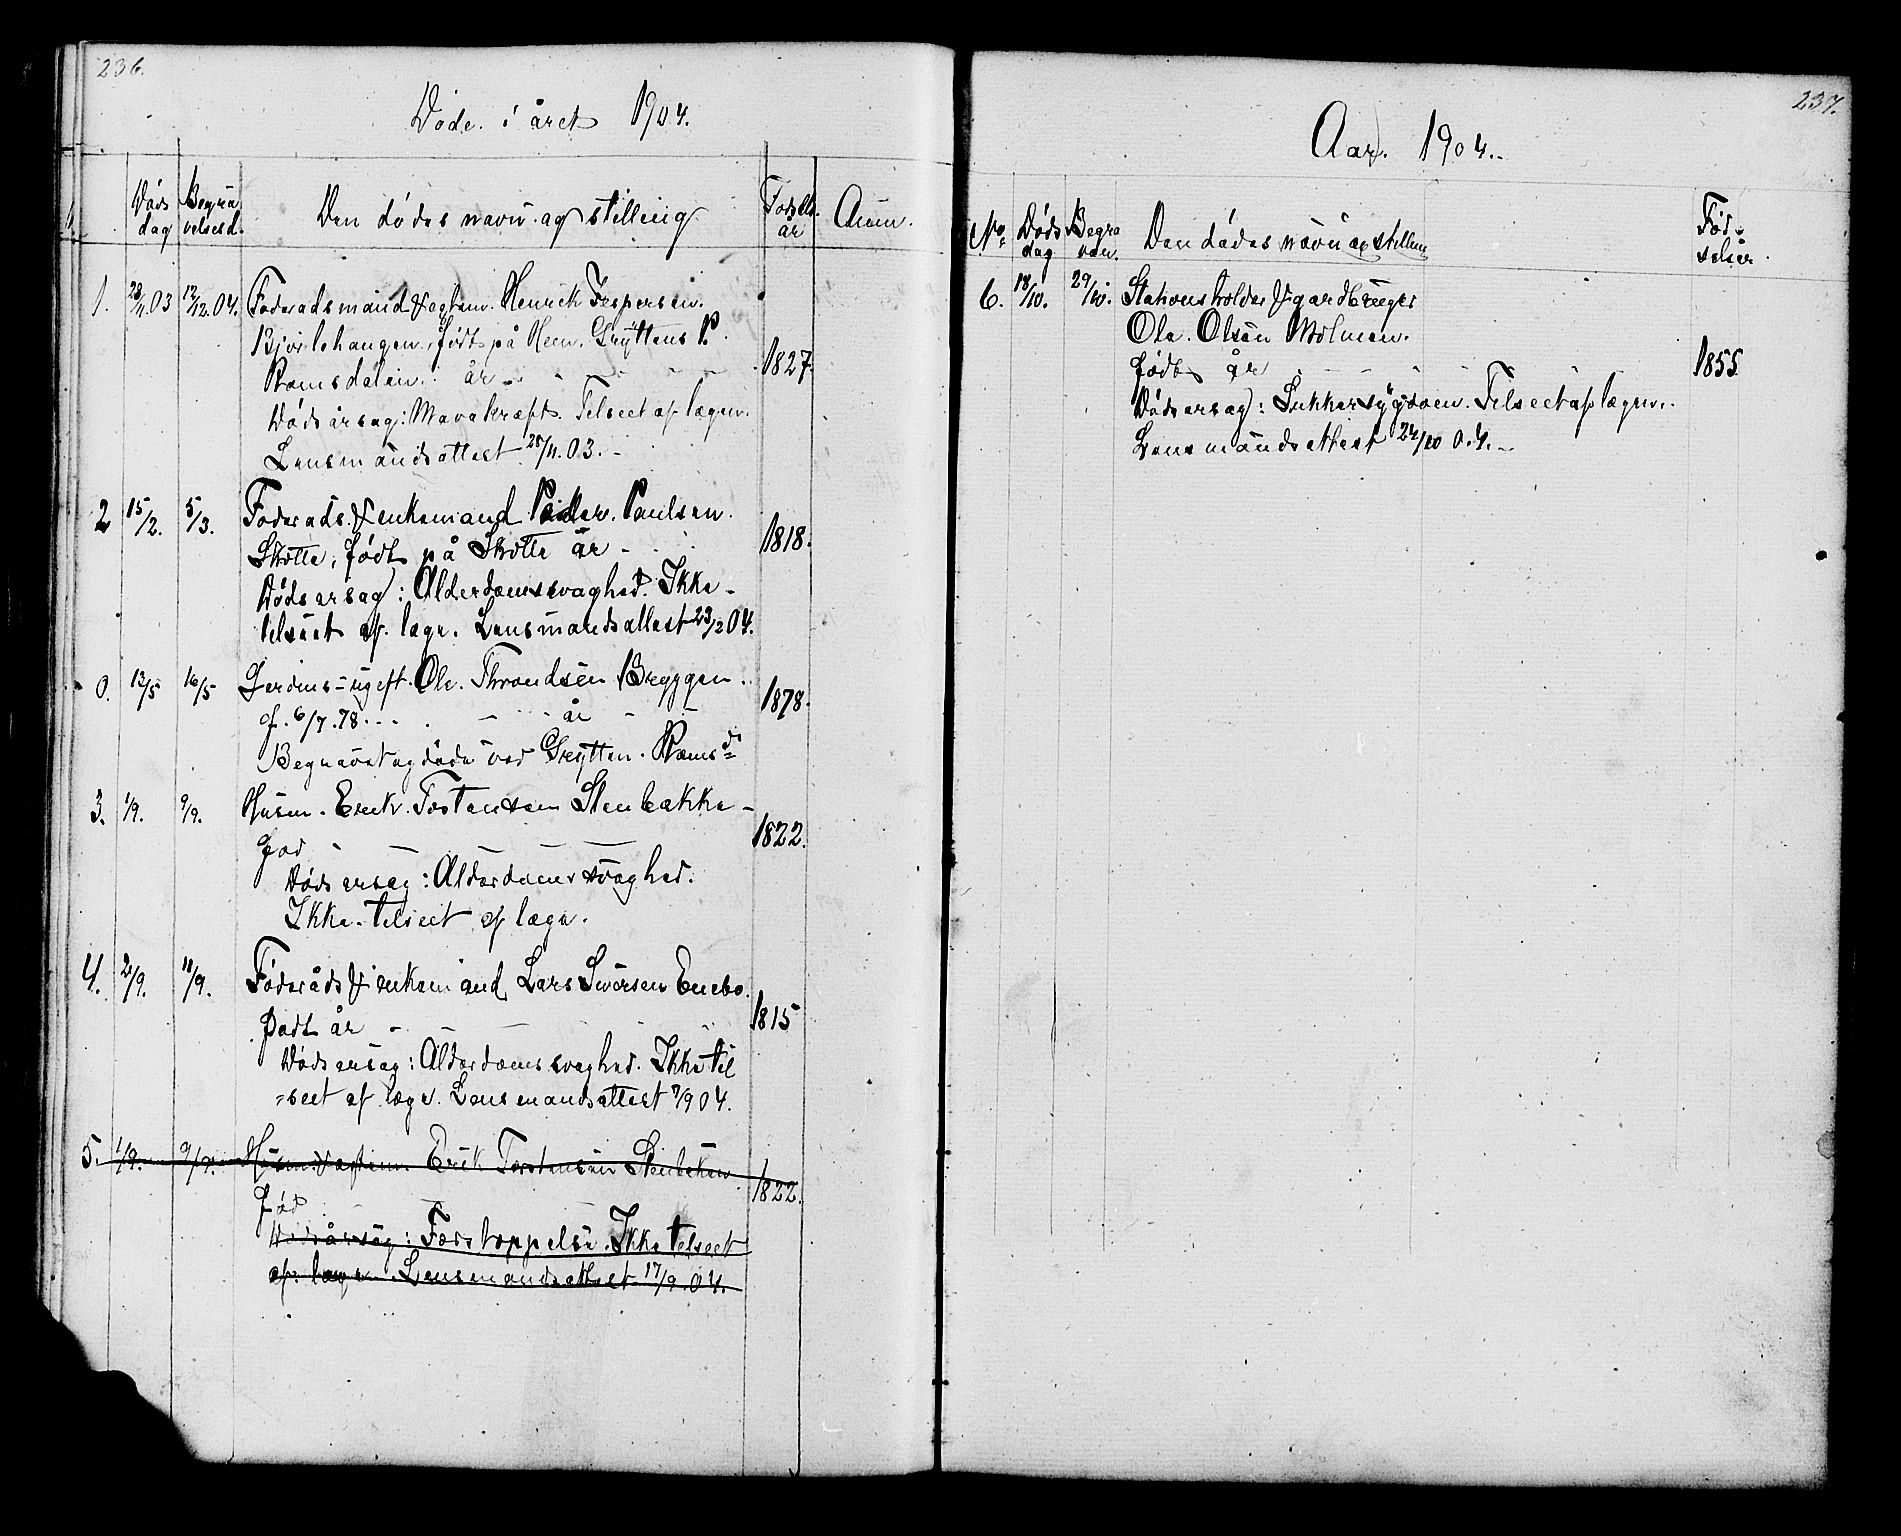 236.
Døde i året 1904.
Døds dag
Begra velsesd.
Den dødes navn og stilling
Fødsels. år
Anm.
1. 28/11.03 12/12.04. Foderadsmand & egtem. Henrik Jespersen.
Bjorlehaugen, født på Hem. Gryttens P.
Ramsdalen. år 1827.
Dødsårsag: Mavekræft. Tilseet af lægen.
Lensmandsattest 28/11.03.
2 15/2. 5/3. Foderads & enkemand Peder Paulsen.
Skotte, født på Skotte år 1818.
Dødsarsag: Alderdomssvaghed. Ikke
tilseet af læge. Lensmandsattest 23/2 04.
0. 13/5 16/5 ugift Ole Throndsen Bryggen.
f. 6/7.78. år 1878.
Begravet og døde ved Grytten. Rams
3. 1/9. 9/9. Husm. Erik Tostensen Stenbakke
Fød 1822.
Dødsarsag: Alderdomssvaghed.
Ikke tilseet af læge.
4. 2/9. 11/9. Føderåds & enkemand Lars Iversen Enebo.
Født år 1815
Dødsarsag: Alderdomssvaghed. Ikke til
=seet af læge. Lensmandsattest 7/9 04.
5. 1/9. 9/9. Husm. & egtem. Erik Torstensen Stenbeken
Fød 1822.
Dødsårsag: Forstoppelse. Ikke tilseet
af læge. Lensmandsattest 17/9.04.
237.
Aar. 1904.
No.
Døds dag
Begra ven.
Den dødes navn og stilling
Fød- selsår.
6. 18/10. 29/10. Stationsholder & gardbruger
Ole Olsen Mølmen.
født år 1855
Dødsarsag: Sukkersygdom. Tilseet af lægen.
Lensmandsattest 24/10 04.